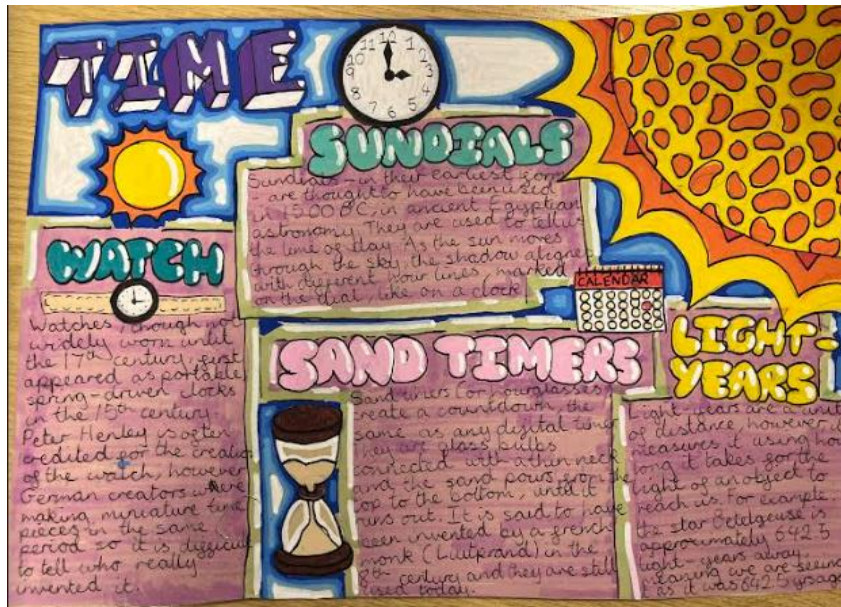 TIME
12
11
1
10
2
9
3
8
4
7
5
6
SUNDIALS
Sundials - in their earliest form
- are thought to have been used
in 1500 BC, in ancient Egyptian
astronomy. They are used to tell us
the time of day. As the sun moves
through the sky, the shadow aligns
with different hour lines, marked
on the dial, like on a clock
WATCH
Watches, though not
widely worn until
the 17th century, first
appeared as portable,
spring-driven clocks
in the 15th century
Peter Henley is often
credited for the creation
of the watch, however
German creators where
making miniature time
pieces in the same
period so it is difficult
to tell who really
invented it.
CALENDAR
SAND TIMERS
Sand timers (or hourglasses)
create a countdown, the
same as any digital timer
they are glass bulbs
connected with a thin neck
and the sand pours from the
top to the bottom, until it
runs out. It is said to have
been invented by a french
monk (Luitprand) in the
8th century and they are still
used today.
LIGHT-
YEARS
Light-years are a unit
of distance, however it
measures it using how
long it takes for the
light of an object to
reach us. For example
the star Betelgeuse is
approximately 642.5
light-years away
meaning we are seeing
it as it was 642.5 yrs ago